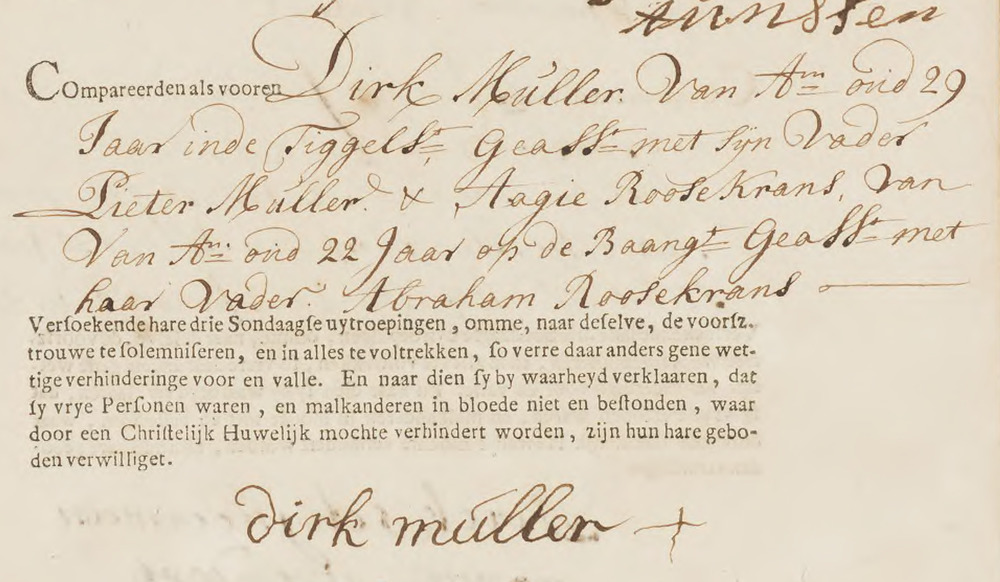 Compareerden als vooren Dirk Muller. Van Am oud 29
Jaar inde Tiggelst, Geasst met syn Vader
Pieter Muller. & Aagie RooseKrans, Van
Van Am. oud 22 Jaar op de Baangt Geasst met
haar Vader. Abraham Roosekrans
Verſoekende hare drie Sondaagſe uytroepingen, omme, naar deſelve, de voorſz.
trouwe te ſolemniſeren, en in alles te voltrekken, ſo verre daar anders gene wet-
tige verhinderinge voor en valle. En naar dien ſy by waarheyd verklaaren, dat
ſy vrye Perſonen waren, en malkanderen in bloede niet en beſtonden, waar
door een Chriſtelijk Huwelijk mochte verhindert worden, zijn hun hare gebo-
den verwilliget.
dirk muller +